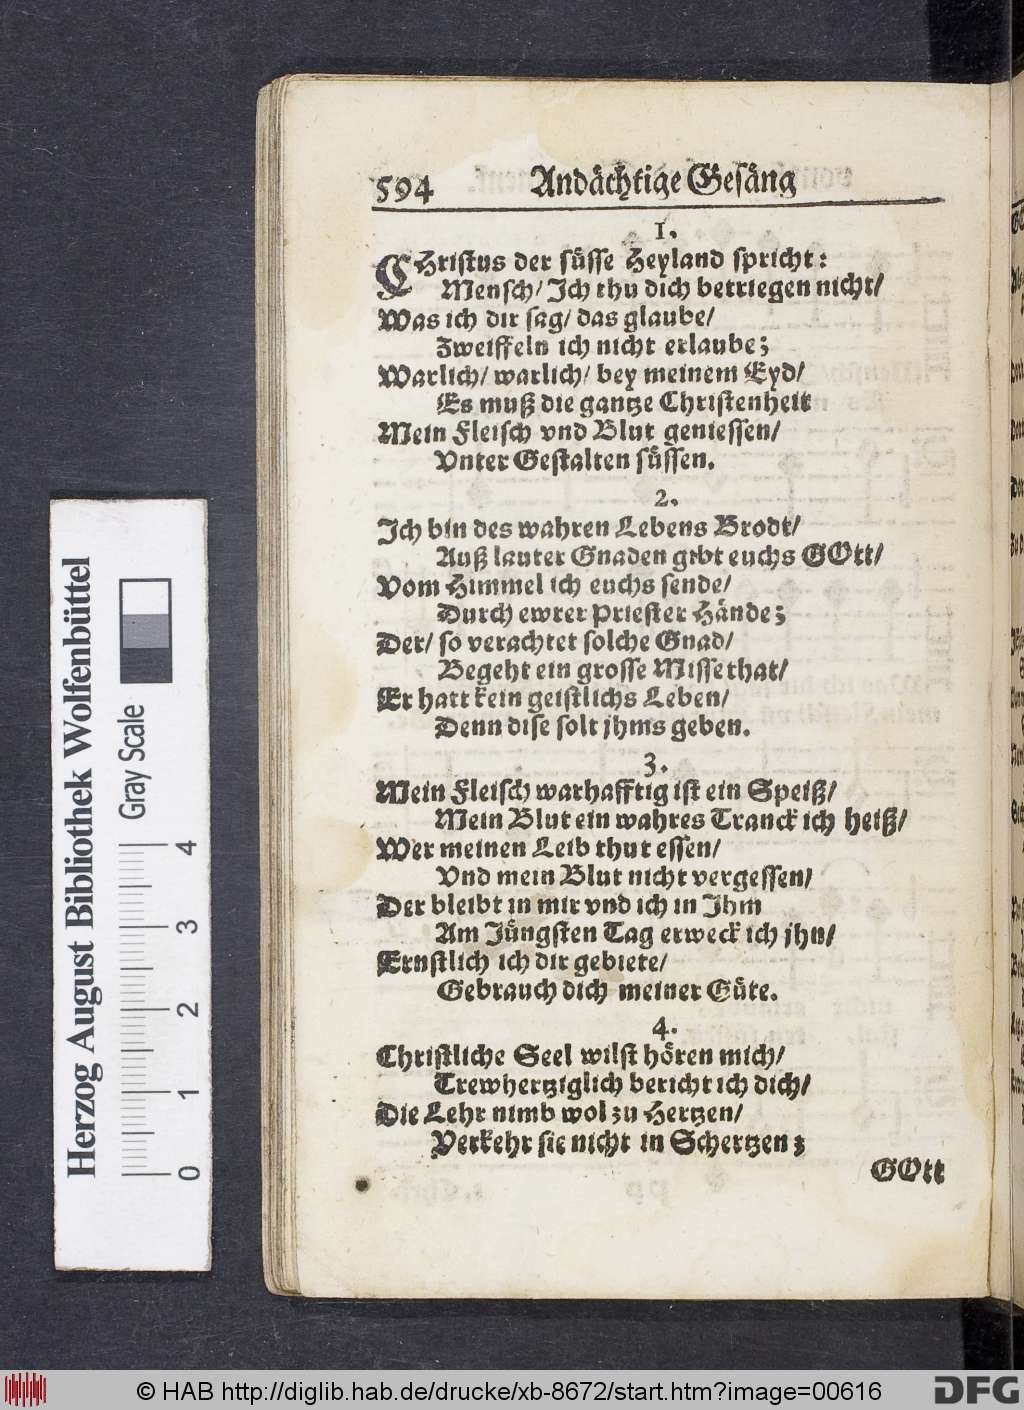 594 Andächtige Gesäng
1.
CHristus der süsse Heyland spricht:
Mensch/ Ich thu dich betriegen nicht/
Was ich dir sag/ das glaube/
Zweiffeln ich nicht erlaube;
Warlich/ warlich/ bey meinem Eyd/
Es muß die gantze Christenheit
Mein Fleisch vnd Blut geniessen/
Vnter Gestalten süssen.
2.
Ich bin des wahren Lebens Brodt/
Auß lauter Gnaden gibt euchs GOtt/
Vom Himmel ich euchs sende/
Durch ewrer Priester Hände;
Der/ so verachtet solche Gnad/
Begeht ein grosse Missethat/
Er hatt kein geistlichs Leben/
Denn dise solt jhms geben.
3.
Mein Fleisch warhafftig ist ein Speiß/
Mein Blut ein wahres Tranck ich heiß/
Wer meinen Leib thut essen/
Vnd mein Blut nicht vergessen/
Der bleibt in mir vnd ich in Ihm
Am Jüngsten Tag erweck ich jhn/
Ernstlich ich dir gebiete/
Gebrauch dich meiner Güte.
4.
Christliche Seel wilst hören mich/
Trewhertziglich bericht ich dich/
Die Lehr nimb wol zu Hertzen/
Verkehr sie nicht in Schertzen;
GOtt
Herzog August Bibliothek Wolfenbüttel
Gray Scale
0 1 2 3 4
© HAB http://diglib.hab.de/drucke/xb-8672/start.htm?image=00616
DFG